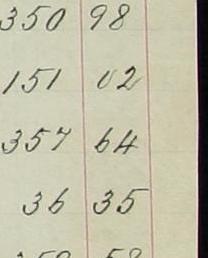 350 98
151 02
357 64
36 35